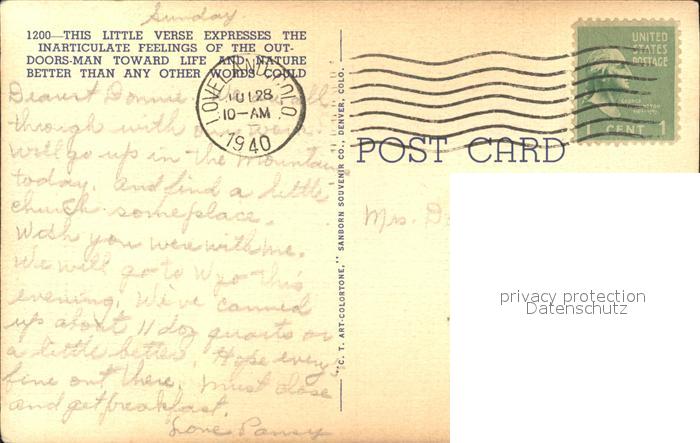 Sunday.
1200—THIS LITTLE VERSE EXPRESSES THE
INARTICULATE FEELINGS OF THE OUT-
DOORS-MAN TOWARD LIFE AND NATURE
BETTER THAN ANY OTHER WORDS COULD
Dearest Donnie all
through with
Will go up in the Mountains
today. And find a little
church someplace.
Wish you were with me.
We will go to Wyo this
evening. We've canned
up about 11 doz quarts or
a little better. Hope every
fine out there. Must close
and get breakfast.
Love Pansy
LOVELAND, COLO.
JUL 28
10-AM
1940
UNITED
STATES
POSTAGE
1 CENT 1
POST CARD
Mrs. Do
"C. T. ART-COLORTONE," SANBORN SOUVENIR CO., DENVER, COLO.
privacy protection
Datenschutz